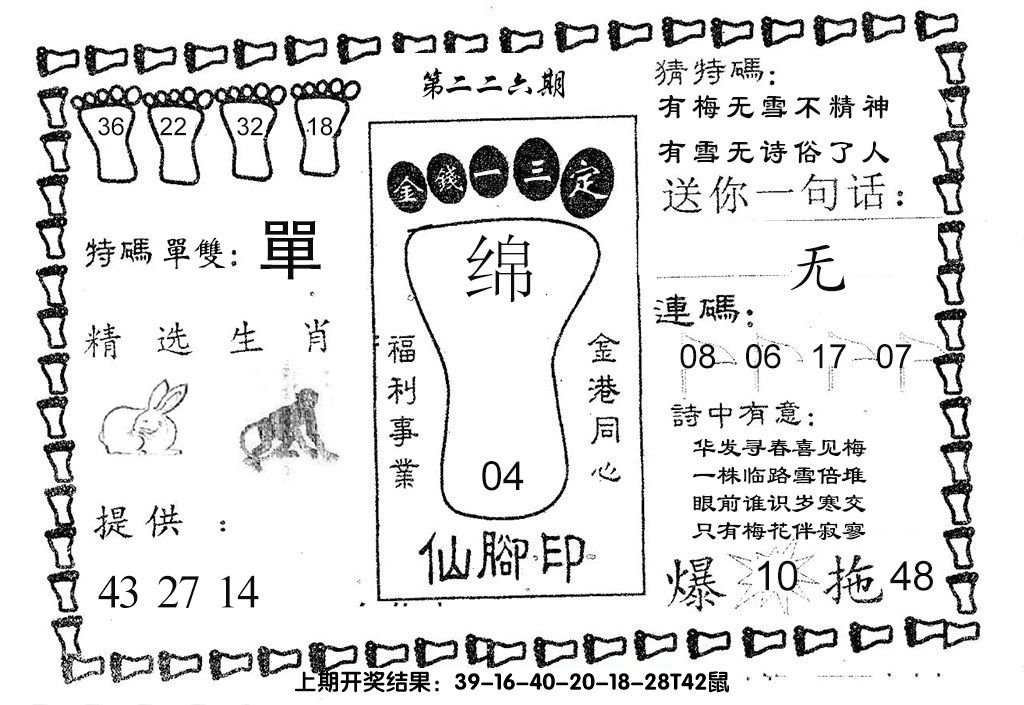 第二二六期
36 22 32 18
特碼單雙：單
精选生肖
提供：
43 27 14
金錢一三定
绵
福利事業
金港同心
04
仙腳印
猜特碼：
有梅无雪不精神
有雪无诗俗了人
送你一句话：
无
連碼：
08 06 17 07
詩中有意：
华发寻春喜见梅
一株临路雪倍堆
眼前谁识岁寒交
只有梅花伴寂寥
爆 10 拖 48
上期开奖结果：39-16-40-20-18-28T42鼠